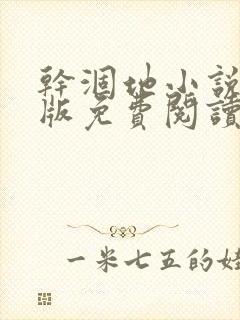 幹涸地小說
版免費閱讀
一米七五的娃